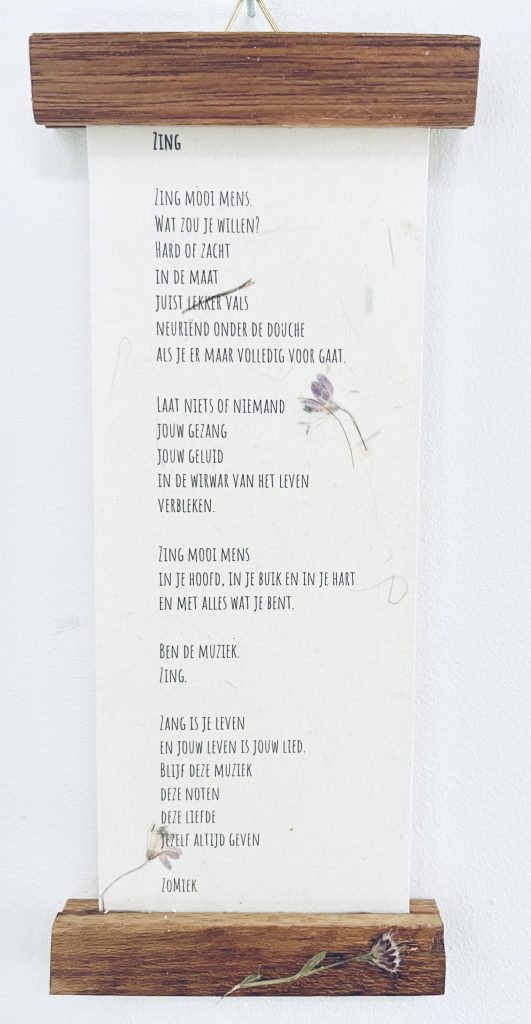 Zing
Zing mooi mens.
Wat zou je willen?
Hard of zacht
in de maat
juist lekker vals
neuriënd onder de douche
als je er maar volledig voor gaat.
Laat niets of niemand
jouw gezang
jouw geluid
in de wirwar van het leven
verbleken.
Zing mooi mens
in je hoofd, in je buik en in je hart
en met alles wat je bent.
Ben de muziek.
Zing.
Zang is je leven
en jouw leven is jouw lied.
Blijf deze muziek
deze noten
deze liefde
jezelf altijd geven
ZoMiek